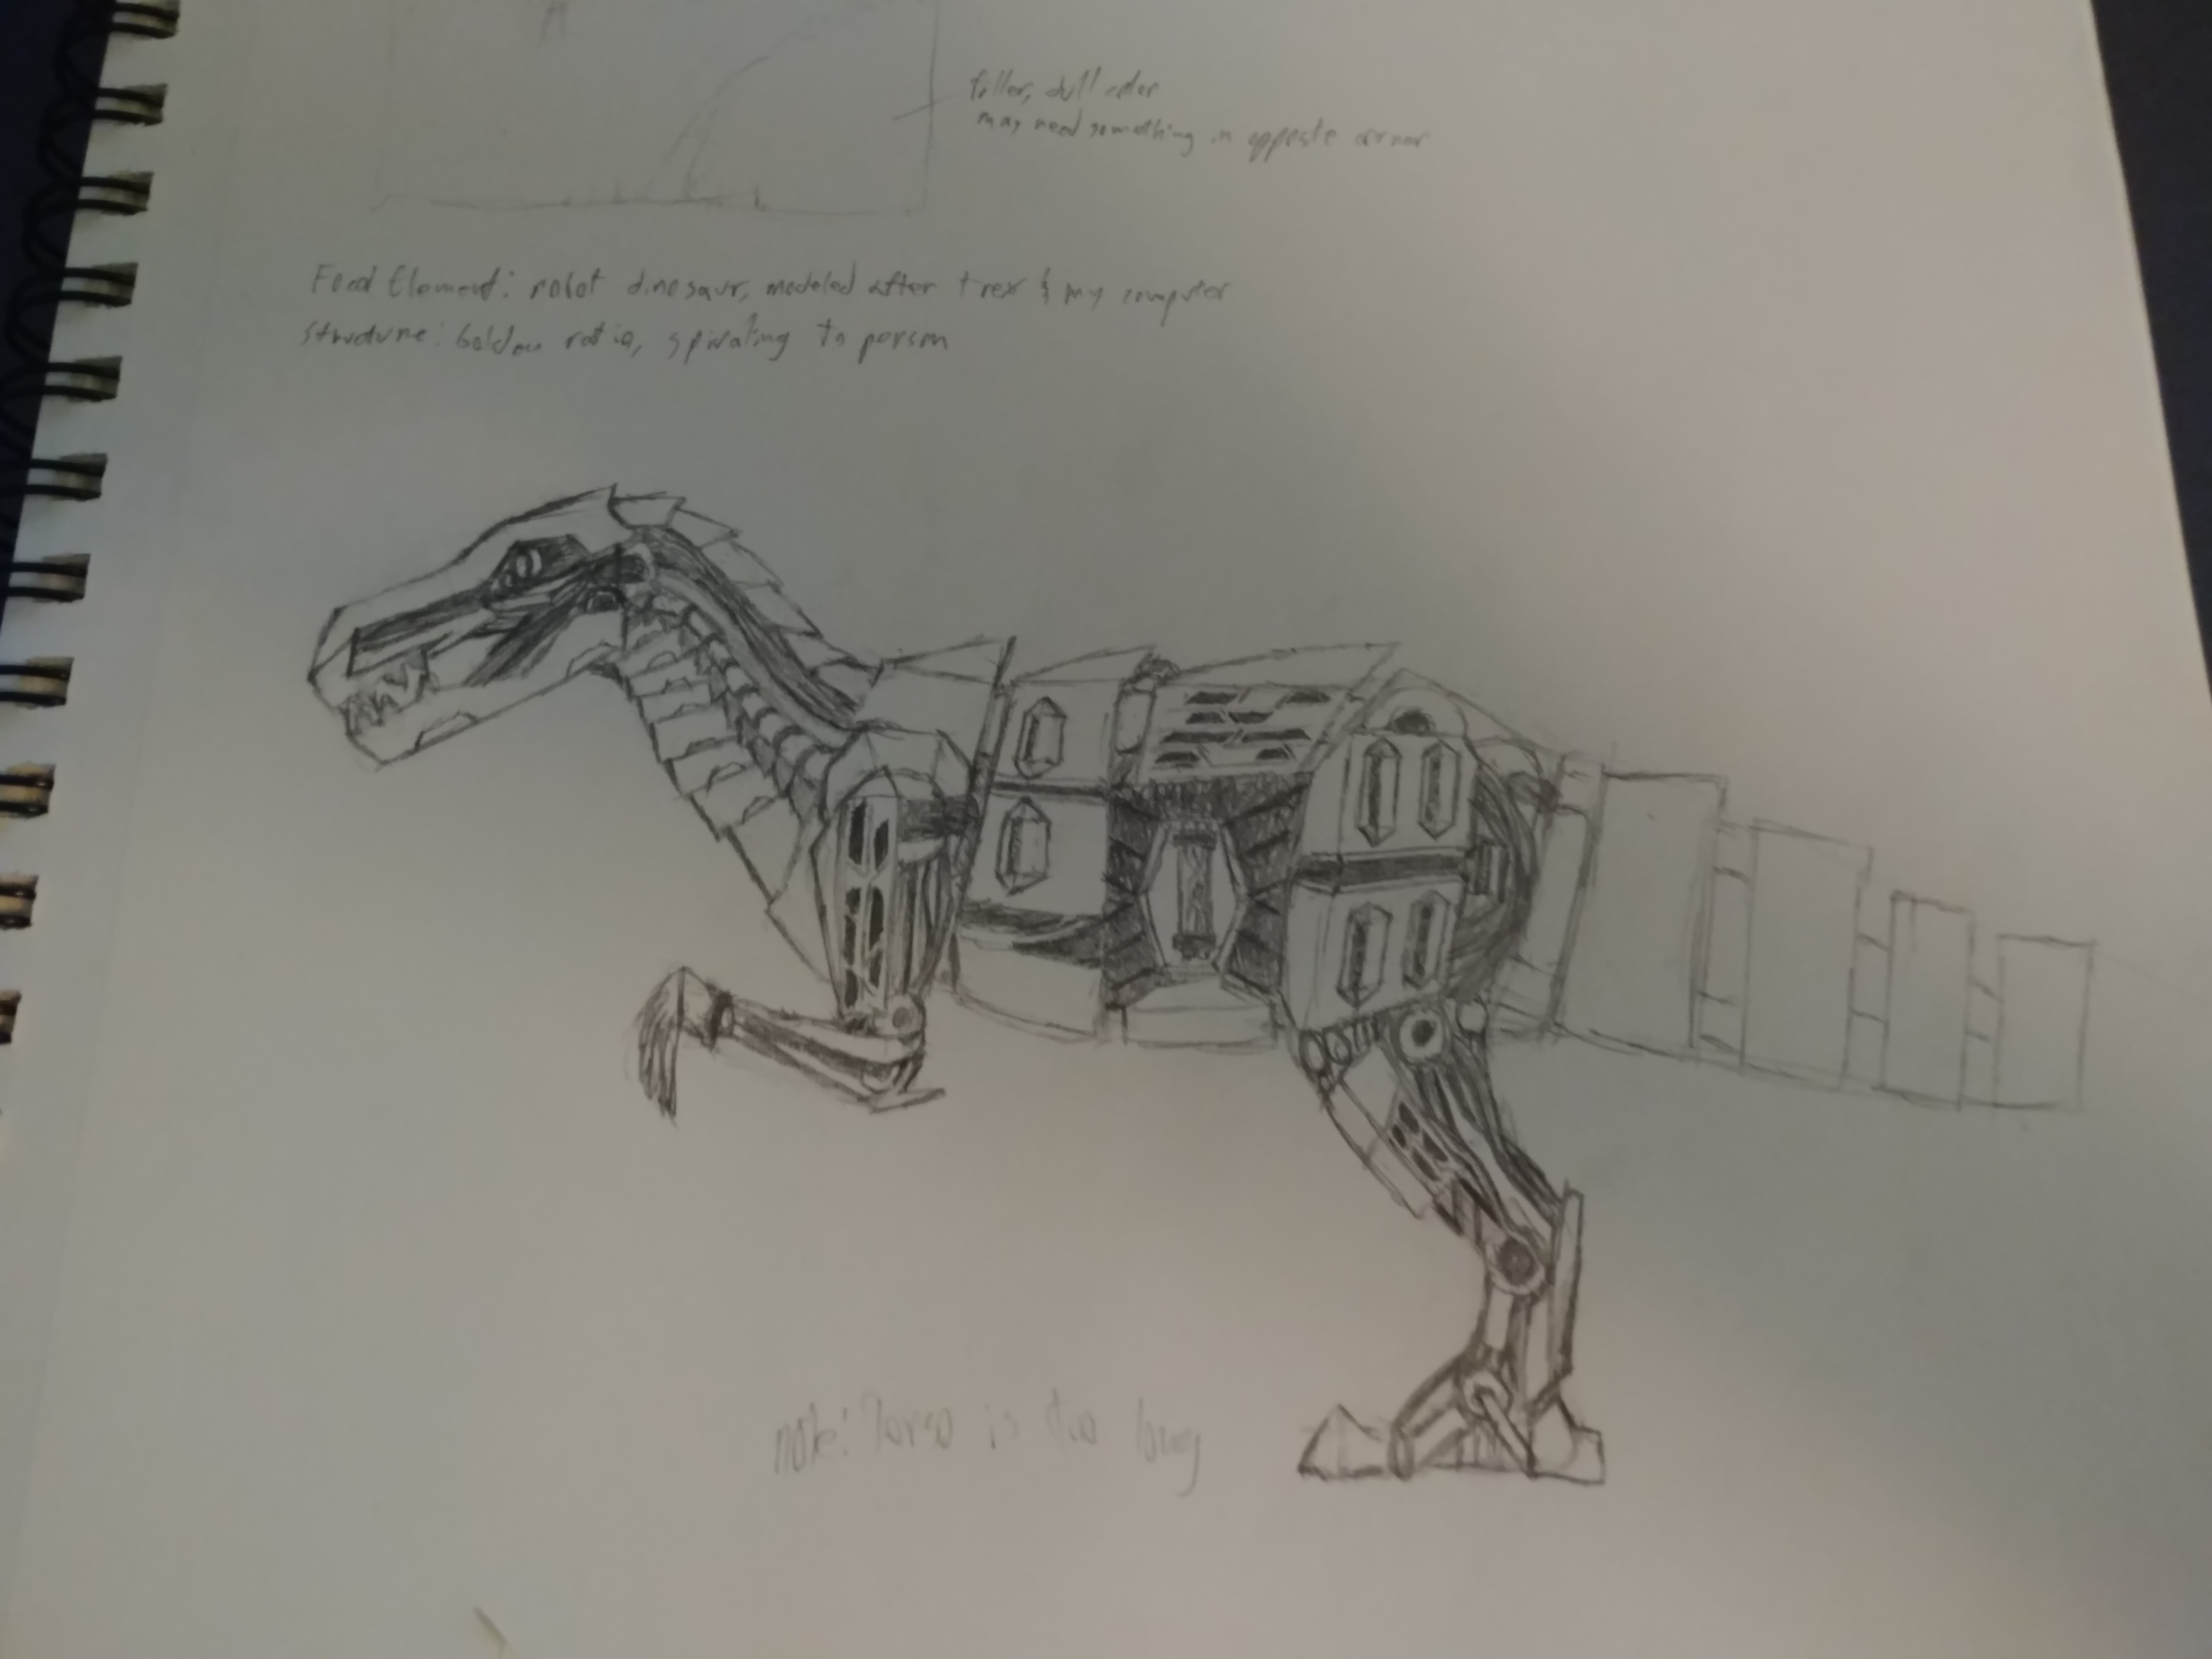 filler, dull color
may need something in opposite corner
Focal Element: robot dinosaur, modeled after t rex & my computer
Structure: Golden ratio, spiraling to person
note: Torso is too long